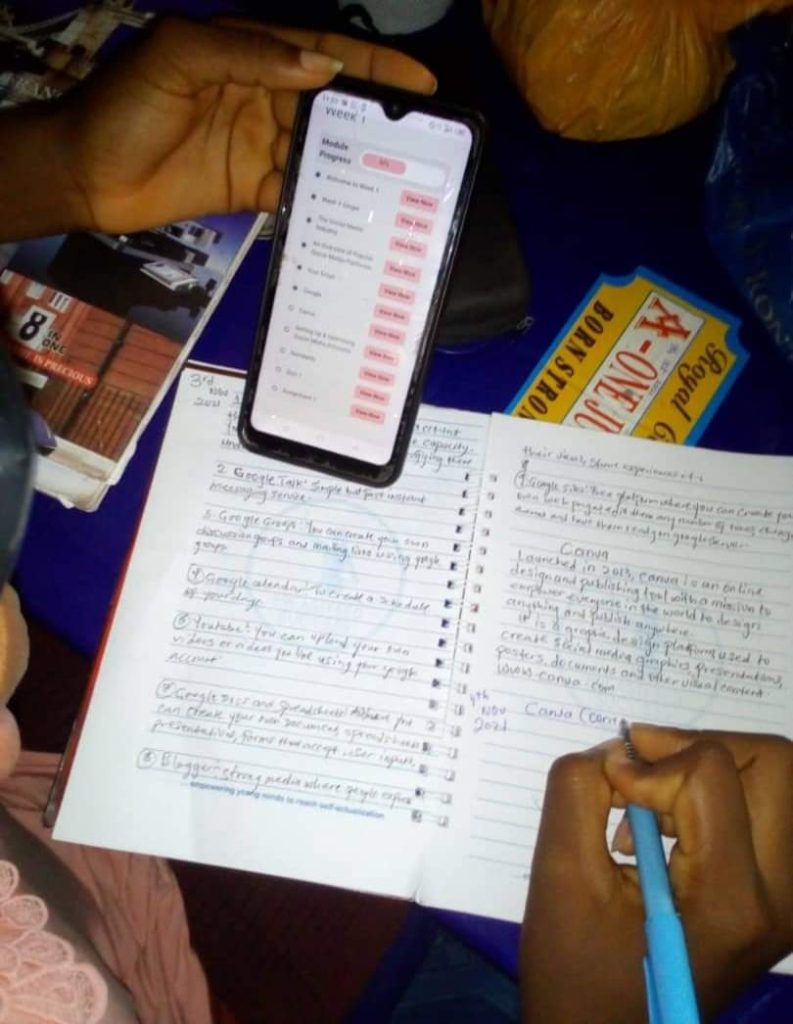 Week 1
Module
Progress
Welcome to Week 1
View Now
View Now
The Social Media
Industry
View Now
An Overview of Popular
Social Media Platforms
View Now
Your Email
View Now
Google
View Now
Canva
View Now
Setting Up & Optimizing
Social Media Accounts
View Now
View Now
Quiz 1
View Now
Assignment 1
View Now
8 IN
ONE
IS PRECIOUS
Royal
A-ONE JU
BORN STRON
KON
3rd
Nov
2021
capacity.
2. Google Talk: Simple but fast instant
messaging service.
3. Google Groups: You can create your own
discussion groups and mailing lists using google
groups
4 Google calendar: To create a schedule
of your days
Youtube: You can upload your own
videos or videos you like using your google
account
Google Docs and Spreadsheets:
can create your own Documents spreadsheets
presentations, forms that accept user inputs.
8 Blogger: strong media where people express
empowering young minds to reach self-actualization
their views, share experiences
Google Sites: free platform where you can create your
own web pages
and have them ready on google server
Canva
Launched in 2013, Canva is an online
design and publishing tool with a mission to
empower everyone in the world to design
anything and publish anywhere.
It is a graphic design platform used to
create social media graphics, presentations,
posters, documents and other visual content
www.canva.com
4th
Nov
2021
Canva (cont